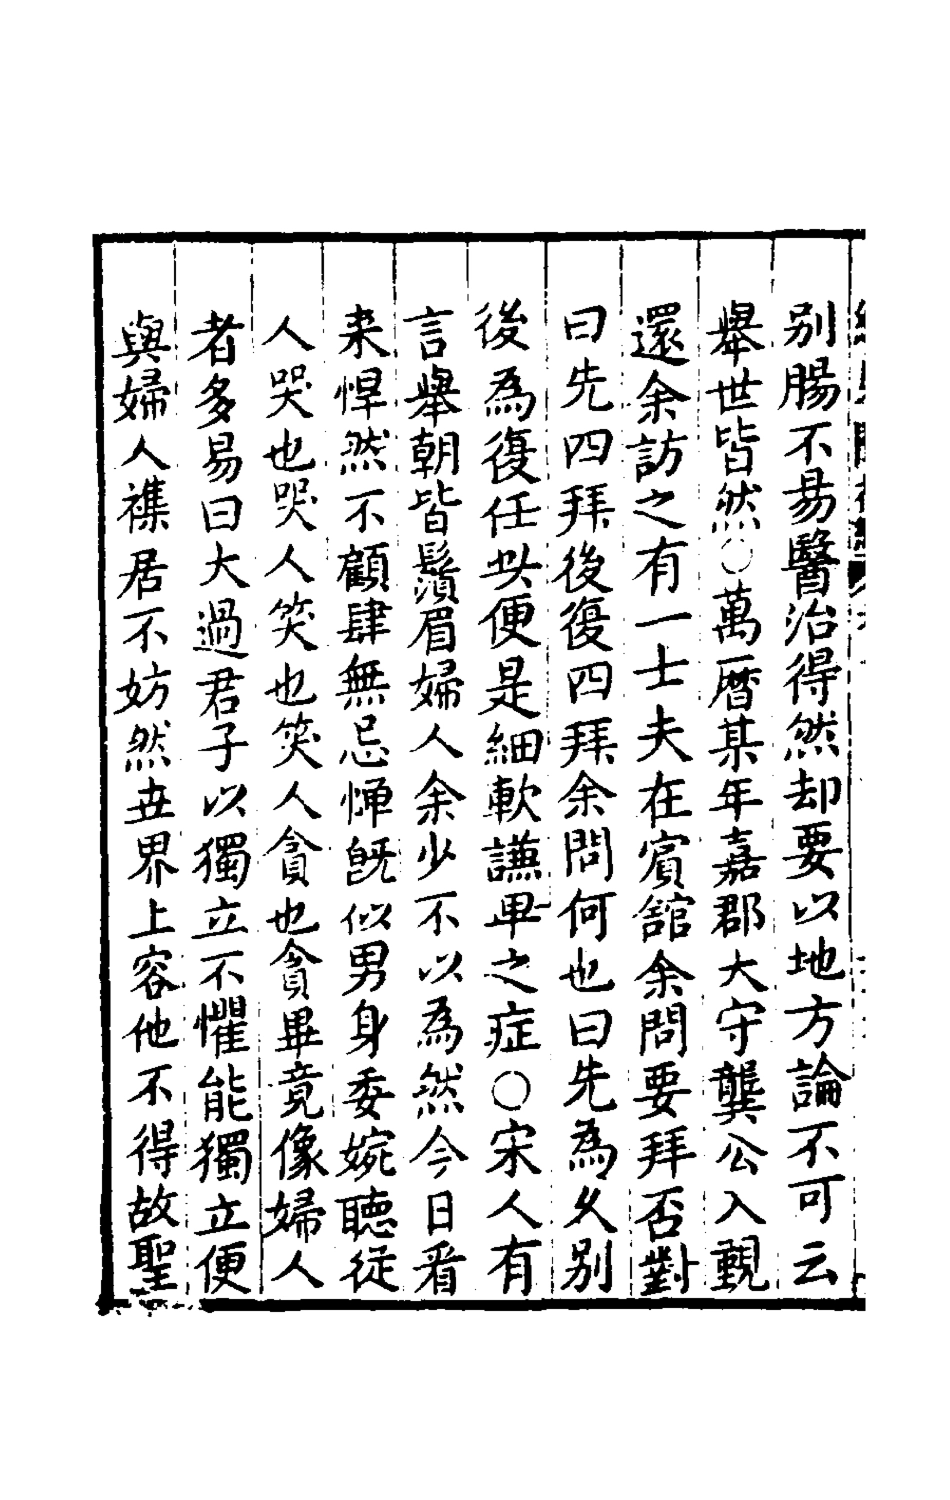 別腸不易醫治得然却要以地方論不可云
舉世皆然○萬曆某年嘉郡大守龔公入覲
還余訪之有一士夫在賓舘余問要拜否對
曰先四拜後復四拜余問何也曰先為久別
後為復任此便是細軟謙卑之症○宋人有
言舉朝皆鬚眉婦人余少不以為然今日看
来悍然不顧肆無忌憚既似男身委婉聽從
人哭也哭人笑也笑人貪也貪畢竟像婦人
者多易曰大過君子以獨立不懼能獨立便
與婦人襍居不妨然世界上容他不得故聖